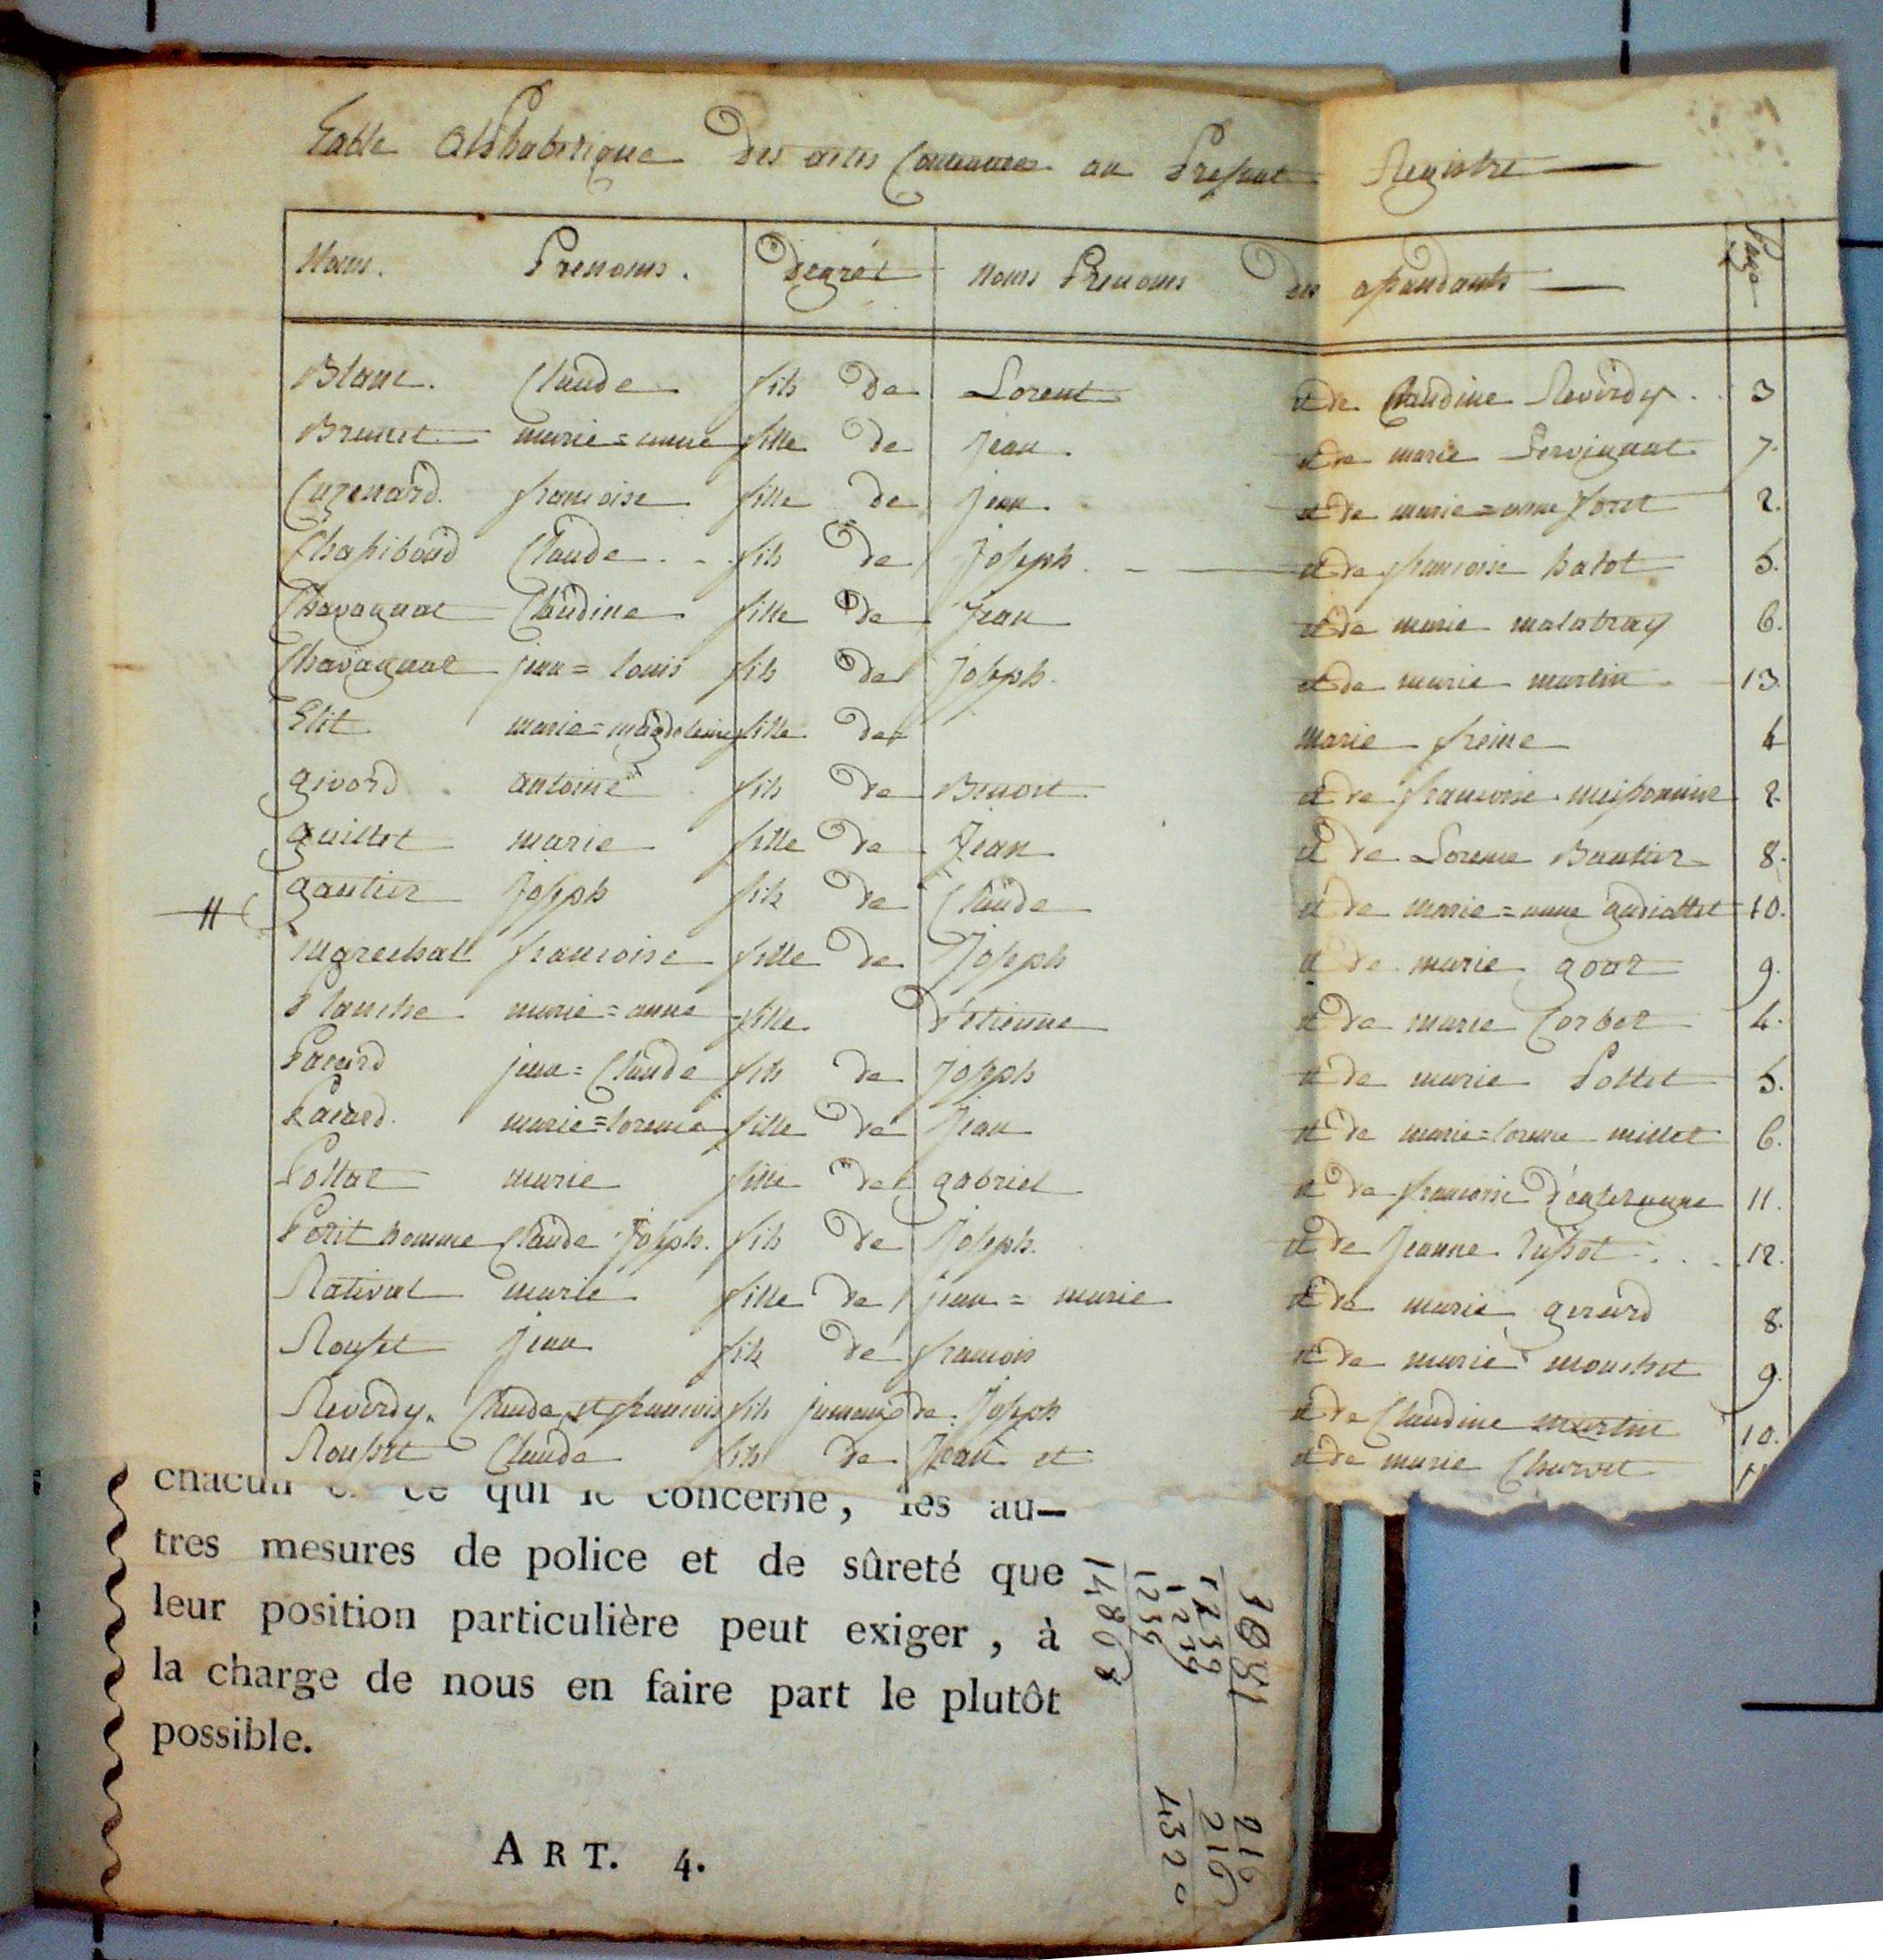 Table Alphabetique Des actes Contenues au Present Registre
Noms. Prenoms. Degrét Noms Prenoms Des asçandants Page
Blanc. Claude fils De Lorent et de Claudine Reverdy. 3
Brunet marie=anne fille De Jean. et de marie 7.
Curenard. francoise fille de Jean. et de marie=anne foret 2.
Chapiboud Claude fils De Joseph. et de francoise hatot 5.
Chavagnat Claudine fille De Jean et de marie malatray 6.
Chavagnat jean=louis fils De Joseph. et de marie martin 13.
Elit marie=magdeleine fille De marie freine 4
givord antoine fils De Benoit et de francoise 2.
guillet marie fille De Jean et de Lorence Bautier 8.
gautier Joseph fils De Claude et de marie=anne 10.
marechall francoise fille De Joseph et de marie goat 9.
Planche marie=anne fille D'étienne et de marie Corbet 4.
Pacard jean=Claude fils De Joseph et de marie Pollet 5.
Pacard. marie=lorence fille De Jean et de marie=lorence millet 6.
Pollat marie fille De gabriel et de francoise 11.
Petit homme Claude Joseph. fils De Joseph. et de Jeanne 12.
Rativat marie fille De jean=marie et de marie gerard 8.
Rousset Jean fils De francois et de marie mouchet 9.
Reverdy. Claude et francois fils jumeaux de Joseph et de Claudine martin 10.
Rousset Claude fils De Jean et et de marie Charvet
chacun ce qui le concerne, les au-
tres mesures de police et de sûreté que
leur position particulière peut exiger, à
la charge de nous en faire part le plutôt
possible.
ART. 4.
1239
1239
1239
14868
216
216
4320